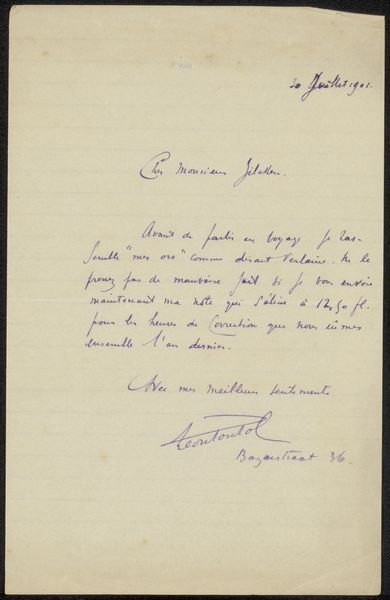 20 Juillet 1901.
Cher Monsieur Zilcken.
Avant de partir en voyage je ras-
semble "mes ors" comme disait Verlaine. Ne le
prenez pas de mauvaise part si je vous envoie
maintenant ma note qui s'élève à 12,50 fl.
pour les heures de correction que nous eûmes
ensemble l'an dernier.
Avec mes meilleurs sentiments
Bazarstraat 36